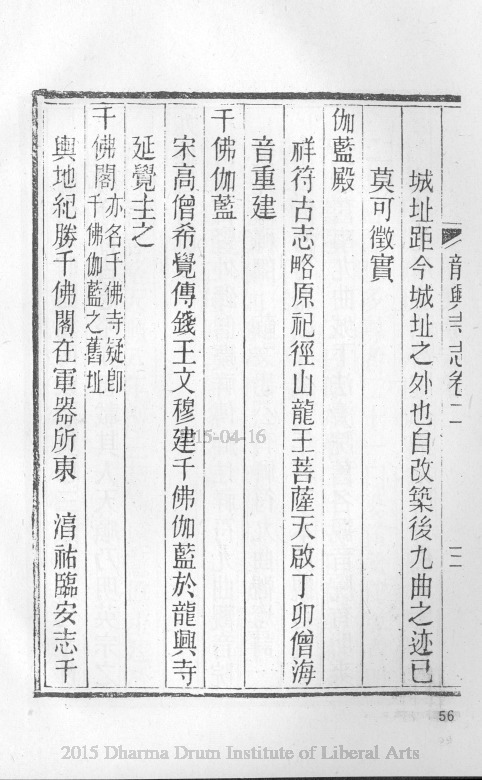 龍興寺志卷二
三
城址距今城址之外也自改築後九曲之迹已
莫可徵實
伽藍殿
祥符古志略原祀徑山龍王菩薩天啟丁卯僧海
音重建
千佛伽藍
宋高僧希覺傳錢王文穆建千佛伽藍於龍興寺
延覺主之
千佛閣亦名千佛寺疑卽
千佛伽藍之舊址
輿地紀勝千佛閣在軍器所東 湻祐臨安志千
15-04-16
56
2015 Dharma Drum Institute of Liberal Arts